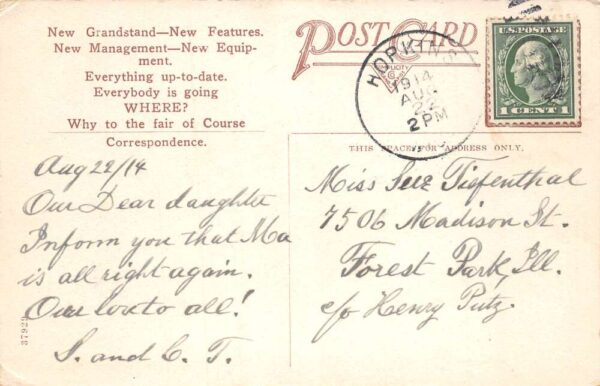 New Grandstand—New Features.
New Management—New Equip-
ment.
Everything up-to-date.
Everybody is going
WHERE?
Why to the fair of Course
Correspondence.
POST CARD
HOPKINS
1914
AUG
22
2 PM
U.S. POSTAGE
1 CENT 1
THIS SPACE FOR ADDRESS ONLY.
Aug 22/14
Our Dear daughter
Inform you that Ma
is all right again.
Our love to all!
S. and C. T.
Miss Tiefenthal
7506 Madison St.
Forest Park, Ill.
c/o Henry Putz.